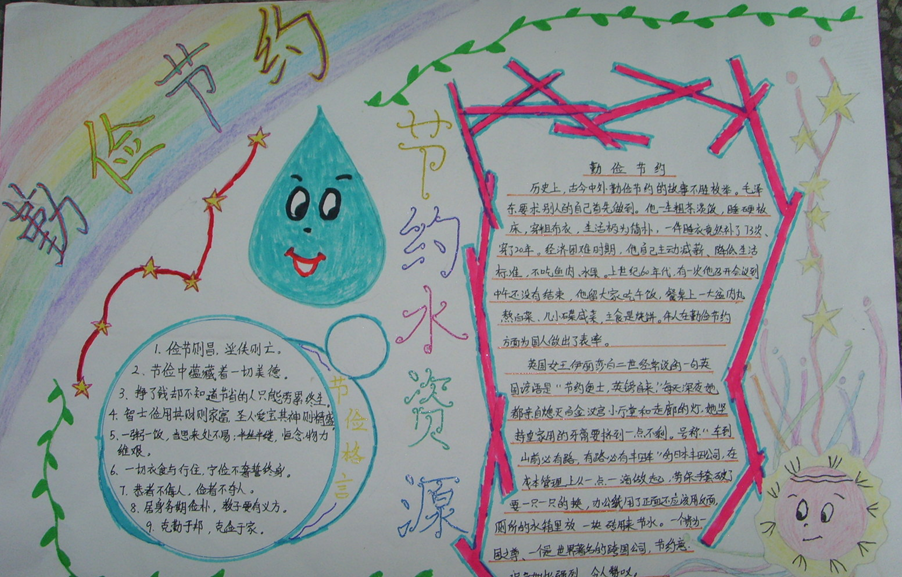 勤俭节约
节约水资源
节俭格言
1. 俭节则昌，淫佚则亡。
2. 节俭中蕴藏着一切美德。
3. 挣了钱却不知道节省的人只能劳累终生。
4. 智士俭用其财则家富 圣人爱宝其神则精盛
5. 一粥一饭，当思来处不易；半丝半缕，恒念物力
维艰。
6. 一切衣食与行住，宁俭不奢誓终身。
7. 恭者不侮人，俭者不夺人。
8. 居身务期俭朴，教子要有义方。
9. 克勤于邦，克俭于家。
勤俭节约
历史上，古今中外勤俭节约的故事不胜枚举。毛泽
东要求别人的自己首先做到。他一生粗茶淡饭，睡硬板
床，穿粗布衣，生活极为简朴，一件睡衣竟然补了73次、
穿了20年。经济困难时期，他自己主动减薪、降低生活
标准，不吃鱼肉、水果。上世纪60年代，有一次他召开会议到
中午还没有结束，他留大家吃午饭，餐桌上一大盆肉丸
熬白菜、几小碟咸菜，主食是烧饼。伟人在勤俭节约
方面为国人做出了表率。
英国女王伊丽莎白二世经常说的一句英
国谚语是“节约便士，英镑自来”每天深夜她
都亲自熄灭白金汉宫小厅堂和走廊的灯，她坚
持皇家用的牙膏要挤到一点不剩。号称“车到
山前必有路，有路必有丰田车”的日本丰田公司，在
成本管理上从一点一滴做起，劳保手套破了
要一只一只的换，办公纸用了正面还应该用反面，
厕所的水箱里放一块砖用来节水。一个贵为一
国之尊、一个是世界著名的跨国公司，节约意